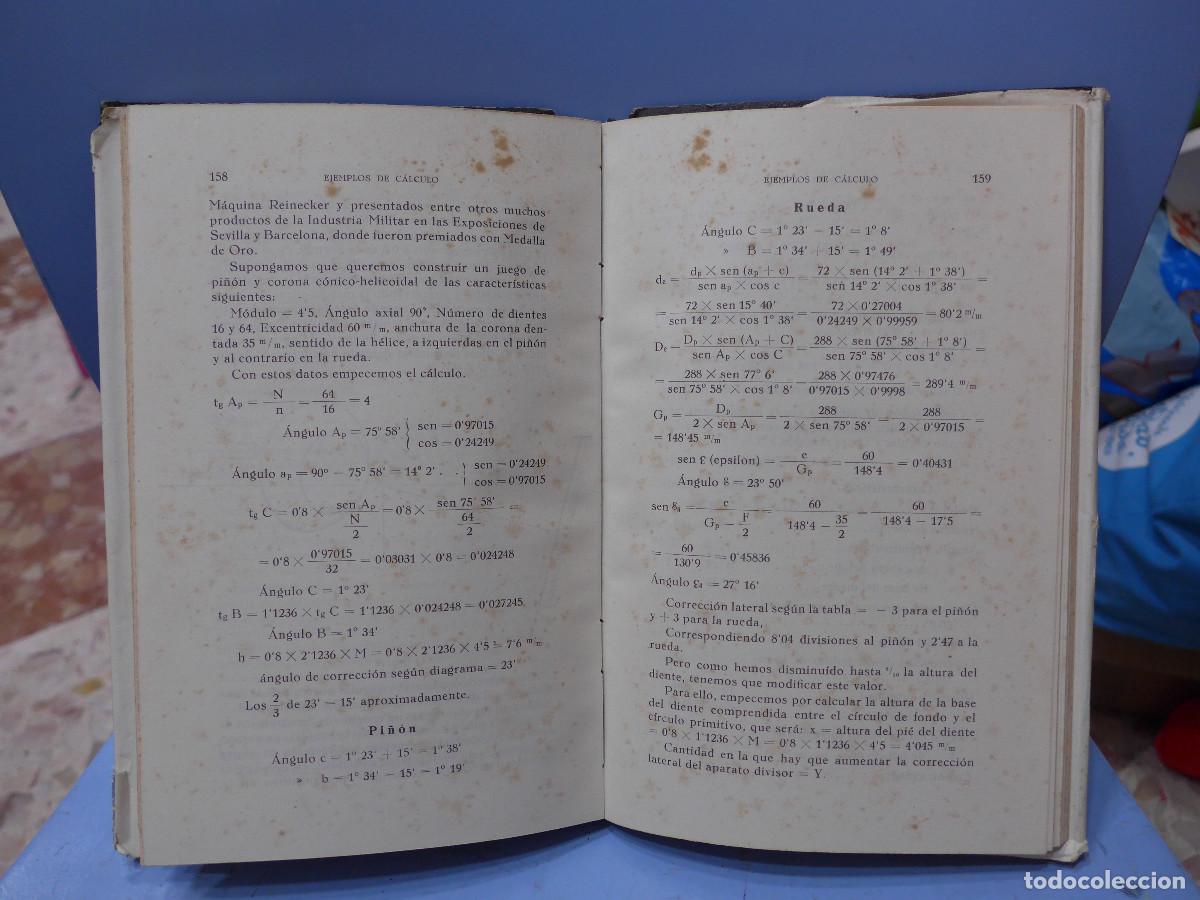 158
EJEMPLOS DE CÁLCULO
Máquina Reinecker y presentados entre otros muchos
productos de la Industria Militar en las Exposiciones de
Sevilla y Barcelona, donde fueron premiados con Medalla
de Oro.
Supongamos que queremos construir un juego de
piñón y corona cónico-helicoidal de las características
siguientes:
Módulo = 4'5, Ángulo axial 90°, Número de dientes
16 y 64, Excentricidad 60 m/m, anchura de la corona den-
tada 35 m/m, sentido de la hélice, a izquierdas en el piñón
y al contrario en la rueda.
Con estos datos empecemos el cálculo.
tg Ap = N/n = 64/16 = 4
Ángulo Ap = 75° 58' { sen = 0'97015
cos = 0'24249
Ángulo ap = 90° — 75° 58' = 14° 2' . { sen = 0'24249
cos = 0'97015
tg C = 0'8 × sen Ap / N/2 = 0'8 × sen 75° 58' / 64/2 =
= 0'8 × 0'97015/32 = 0'03031 × 0'8 = 0'024248
Ángulo C = 1° 23'
tg B = 1'1236 × tg C = 1'1236 × 0'024248 = 0'027245
Ángulo B = 1° 34'
h = 0'8 × 2'1236 × M = 0'8 × 2'1236 × 4'5 = 7'6 m/m
ángulo de corrección según diagrama = 23'
Los 2/3 de 23' — 15' aproximadamente.
Piñón
Ángulo c = 1° 23' + 15' = 1° 38'
» b = 1° 34' — 15' = 1° 19'
EJEMPLOS DE CÁLCULO
159
Rueda
Ángulo C = 1° 23' — 15' = 1° 8'
» B = 1° 34' + 15' = 1° 49'
de = dp × sen (ap + c) / sen ap × cos c = 72 × sen (14° 2' + 1° 38') / sen 14° 2' × cos 1° 38' =
= 72 × sen 15° 40' / sen 14° 2' × cos 1° 38' = 72 × 0'27004 / 0'24249 × 0'99959 = 80'2 m/m
De = Dp × sen (Ap + C) / sen Ap × cos C = 288 × sen (75° 58' + 1° 8') / sen 75° 58' × cos 1° 8' =
= 288 × sen 77° 6' / sen 75° 58' × cos 1° 8' = 288 × 0'97476 / 0'97015 × 0'9998 = 289'4 m/m
Gp = Dp / 2 × sen Ap = 288 / 2 × sen 75° 58' = 288 / 2 × 0'97015 =
= 148'45 m/m
sen ε (epsilon) = e/Gp = 60/148'4 = 0'40431
Ángulo ε = 23° 50'
sen ε₄ = e / Gp — F/2 = 60 / 148'4 — 35/2 = 60 / 148'4 — 17'5 =
= 60/130'9 = 0'45836
Ángulo ε₄ = 27° 16'
Corrección lateral según la tabla = — 3 para el piñón
y + 3 para la rueda,
Correspondiendo 8'04 divisiones al piñón y 2'47 a la
rueda.
Pero como hemos disminuído hasta la altura del
diente, tenemos que modificar este valor.
Para ello, empecemos por calcular la altura de la base
del diente comprendida entre el círculo de fondo y el
círculo primitivo, que será: x = altura del pié del diente
= 0'8 × 1'1236 × M = 0'8 × 1'1236 × 4'5 = 4'045 m/m
Cantidad en la que hay que aumentar la corrección
lateral del aparato divisor = Y.
todocoleccion